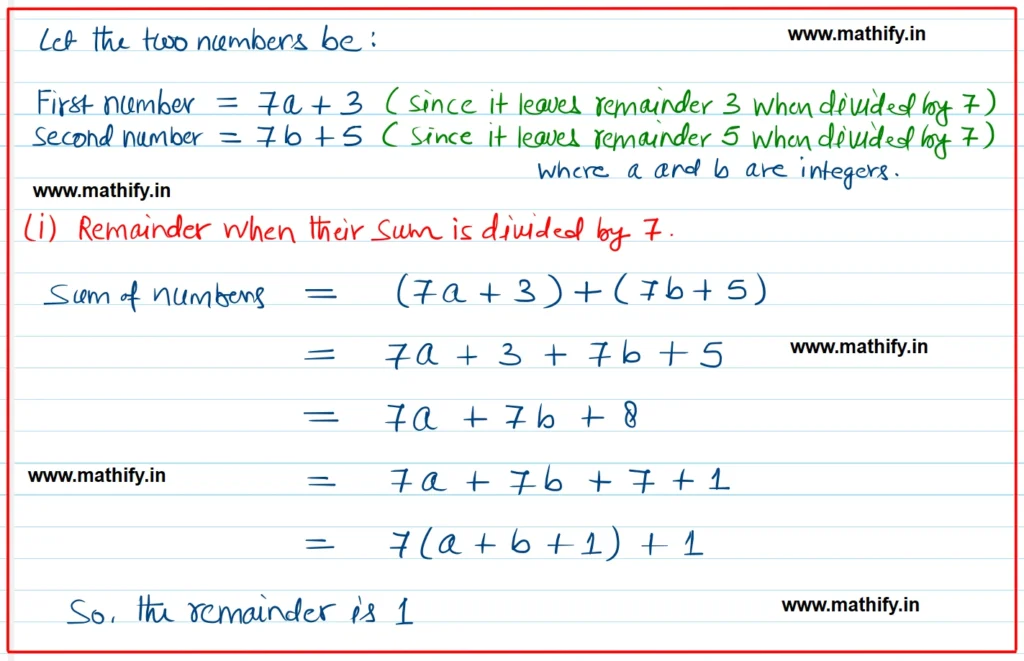 Let the two numbers be :
www.mathify.in
First number = 7a + 3 ( since it leaves remainder 3 when divided by 7 )
second number = 7b + 5 ( since it leaves remainder 5 when divided by 7 )
where a and b are integers.
www.mathify.in
(i) Remainder when their sum is divided by 7.
Sum of numbers = (7a + 3 ) + ( 7b + 5 )
= 7a + 3 + 7b + 5
www.mathify.in
= 7a + 7b + 8
www.mathify.in
= 7a + 7b + 7 + 1
= 7(a + b + 1) + 1
So, the remainder is 1
www.mathify.in